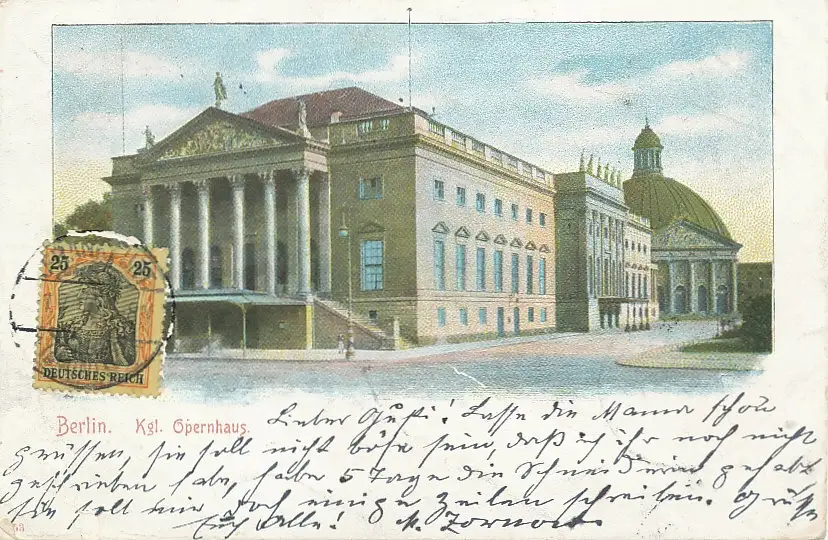 25 25
DEUTSCHES REICH
Berlin. Kgl. Opernhaus.
Lieber Gusti! Lasse die Mama schön
grüssen, sie soll nicht böse sein, daß ich ihr noch nicht
geschrieben habe, habe 5 Tage die Schneiderin gehabt
sie soll mir doch einige Zeilen schreiben. Grüße
Euch Alle! M.
53